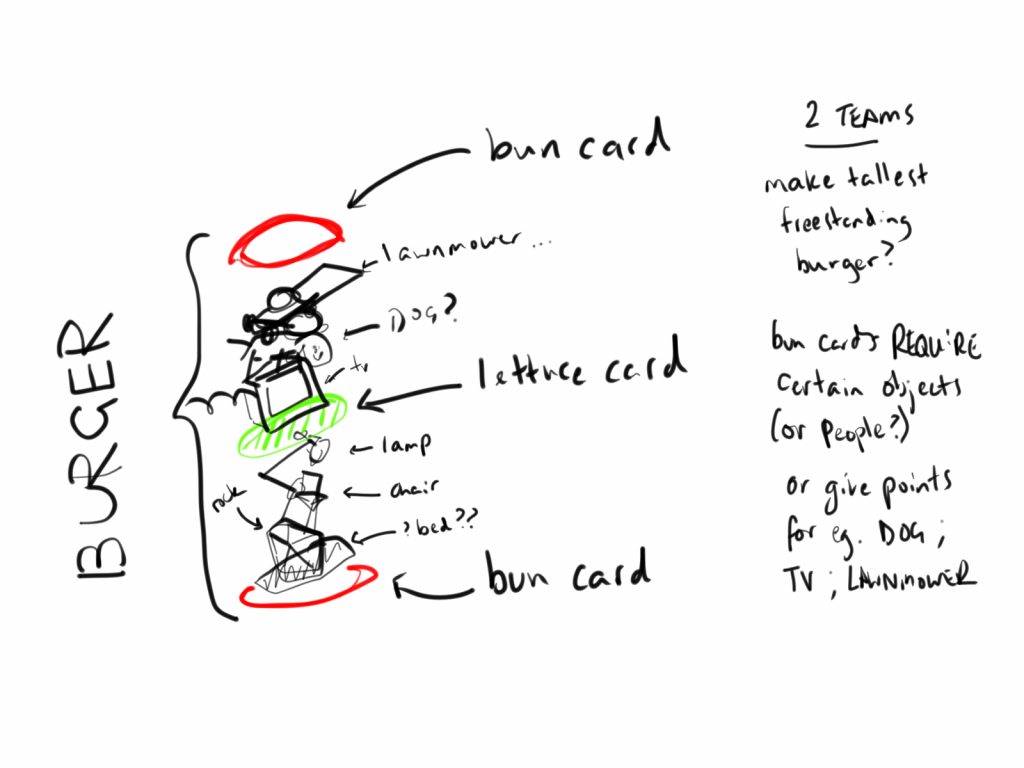 BURGER
bun card
lawnmower...
DOG?
tv
lettuce card
lamp
chair
rock
?bed??
bun card
2 TEAMS
make tallest
freestanding
burger?
bun cards REQUIRE
certain objects
(or people?)
or give points
for eg. DOG;
TV; LAWNMOWER